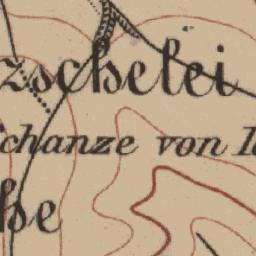 zschelei
Schanze von 1
he